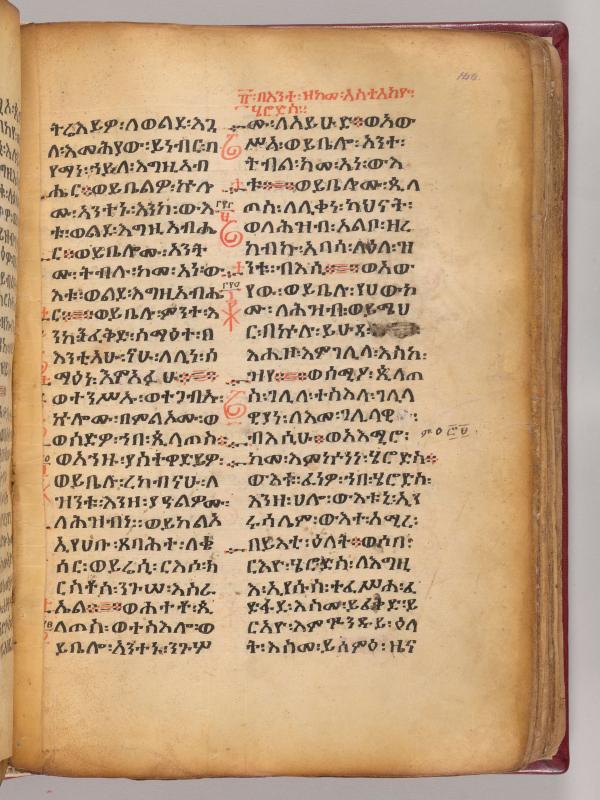 ትሬእይዎ፡ለወልደ፡እጓ
ለ፡እመሕያው፡ይነብር፡በ
የማነ፡ኀይለ፡እግዚአብ
ሔር።ወይቤልዎ፡ኵሉ
ሙ፡አንተኑ፡እንከ፡ውእ
ቱ፡ወልደ፡እግዚአብሔ
ር።ወይቤሎሙ፡አንት
ሙ፡ትብሉ፡ከመ፡አነ፡ው
እቱ፡ወልደ፡እግዚአብሔ
ር።ወይቤሉ፡ምንተ፡እ
ንከ፡ይፈቅድ፡ሰማዕተ፡በ
እንቲአሁ፡ናሁ፡ለሊነ፡ሰ
ማዕነ፡እምአፉሁ።
ወተንሥኡ፡ወተጋብኡ፡
ኵሎሙ፡በምልኦሙ፡ወ
ወሰድዎ፡ኀበ፡ጲላጦስ።
ወአኀዙ፡ያስተዋድይዎ፡
ወይቤሉ፡ረከብናሁ፡ለ
ዝንቱ፡እንዘ፡ያዔልዎሙ፡
ለሕዝብነ።ወይከልእ
ኢየሀቡ፡ጸባሕተ፡ለቄ
ሳር፡ወይሬሲ፡ርእሶ፡ክ
ርስቶስ፡ንጉሠ፡እስራ
ኤል።ወሐተቶ፡ጲ
ላጦስ፡ወተስእሎ፡ወ
ይቤሎ፡አንተኑ፡ንጉሦ
፹፡በእንተ፡ዘከመ፡አስተአከዮ፡
ሄሮድስ።
ሙ፡ለአይሁድ።ወአው
ሥአ፡ወይቤሎ፡አንተ፡
ትብል፡ከመ፡አነ፡ውእ
ቱ።ወይቤሎሙ፡ጲላ
ጦስ፡ለሊቃነ፡ካህናት፡
ወለሕዝብ፡አልቦ፡ዘረ
ከብኩ፡አበሳ፡ላዕለ፡ዝ
ንቱ፡ብእሲ።ወአው
የው፡ወይቤሉ፡የሀውኮ
ሙ፡ለሕዝብ፡ወይሜህ
ር፡በኵሉ፡ይሁዳ፡
እሒዞ፡እምገሊላ፡እስከ፡
ዝየ።ወሰሚዖ፡ጲላጦ
ስ፡ገሊላ፡ተስእለ፡ገሊላ
ዊያነ፡ለእመ፡ገሊላዊ፡
ብእሲሁ።ወአእሚሮ፡
ከመ፡እምኵናነ፡ሄሮድስ።
ውእቱ፡ፈነዎ፡ኀበ፡ሄሮድስ፡
እንዘ፡ሀሎ፡ውእቱኒ፡ኢየ
ሩሳሌም፡ውእተ፡አሚረ፡
በይእቲ፡ዕለት።ወሶበ፡
ርእዮ፡ሄሮድስ፡ለእግዚ
እ፡ኢየሱስ፡ተፈሥሐ፡ፈ
ድፋደ፡እስመ፡ይፈቅድ፡ይ
ርአዮ፡እምጕንዱይ፡ዕለ
ት፡እስመ፡ይሰምዕ፡ዜና